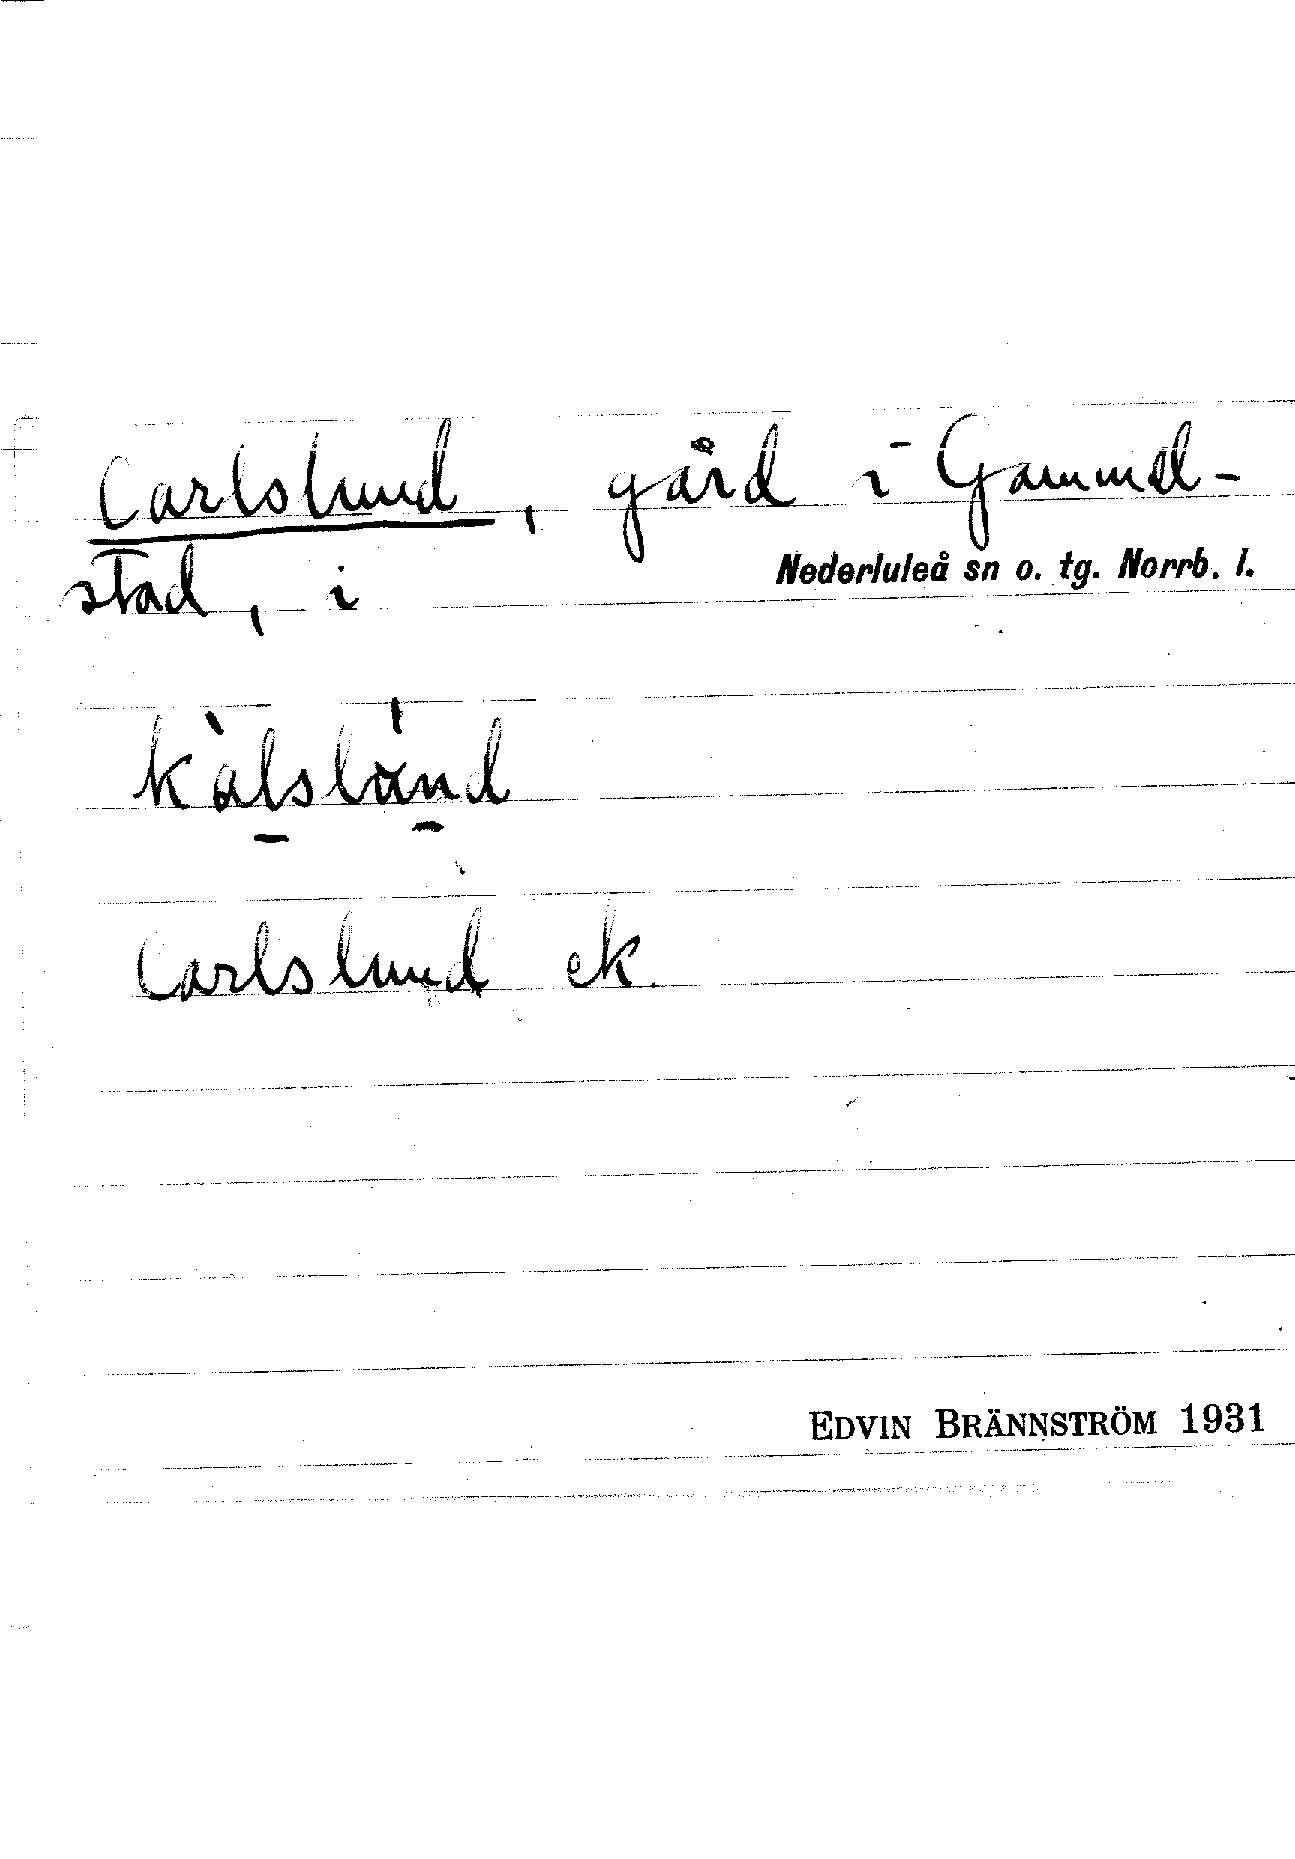 Carlslund, gård i Gammel-
stad, i Nederluleå sn o. tg. Norrb. l.
kàlslánd
Carlslund ek.
EDVIN BRÄNNSTRÖM 1931